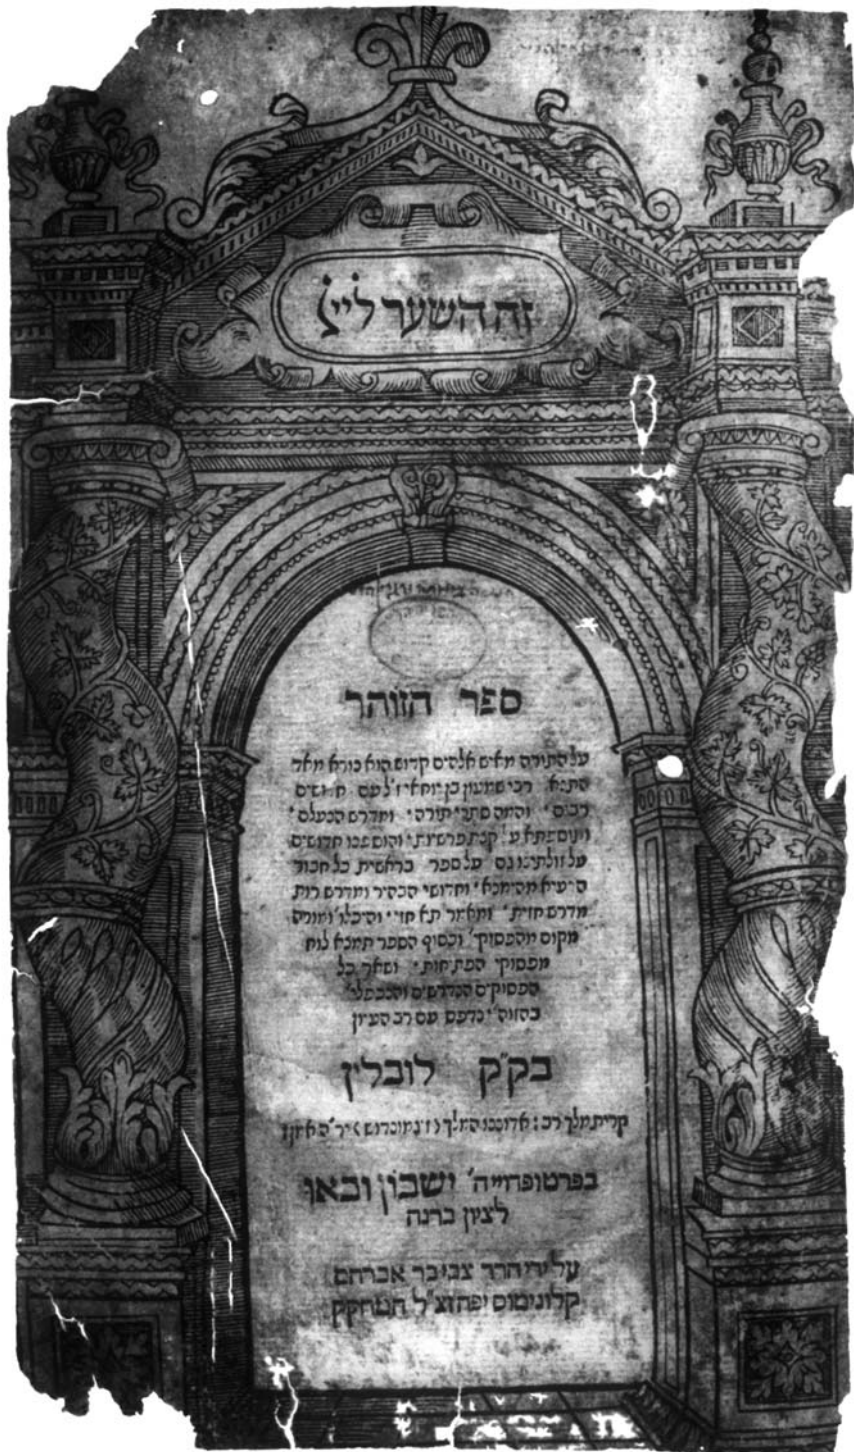 זה השער ליי
ספר הזוהר
על התורה מאיש אלהים קדוש הוא נורא מאד
התנא רבי שמעון בן יוחאי ז"ל עם חדושים
רבים והמה סתרי תורה ומדרש הנעלם
ותוספתא על קצת פרשיות והוספנו חדושים
על זולתינו גם על ספר בראשית כל חבור
הרעיא מהימנא וחדושי הבהיר ומדרש רות
מדרש חזית ומאמר תא חזי והיכלו' ומורה
מקום מהפסוקי' ובסוף הספר תמצא לוח
מפסוקי הפתיחות ושאר כל
הפסוקים הנדרשים והנכפלי'
בהזוה' נדפס עם רב העיון
בק"ק לובלין
קרית מלך רב אדוננו המלך יר"ה אמן
בפרטופרוייה' ישבון ובאו
לציון ברנה
על ידי הרר צבי בר אברהם
קלונימוס יפה זצ"ל המחקק